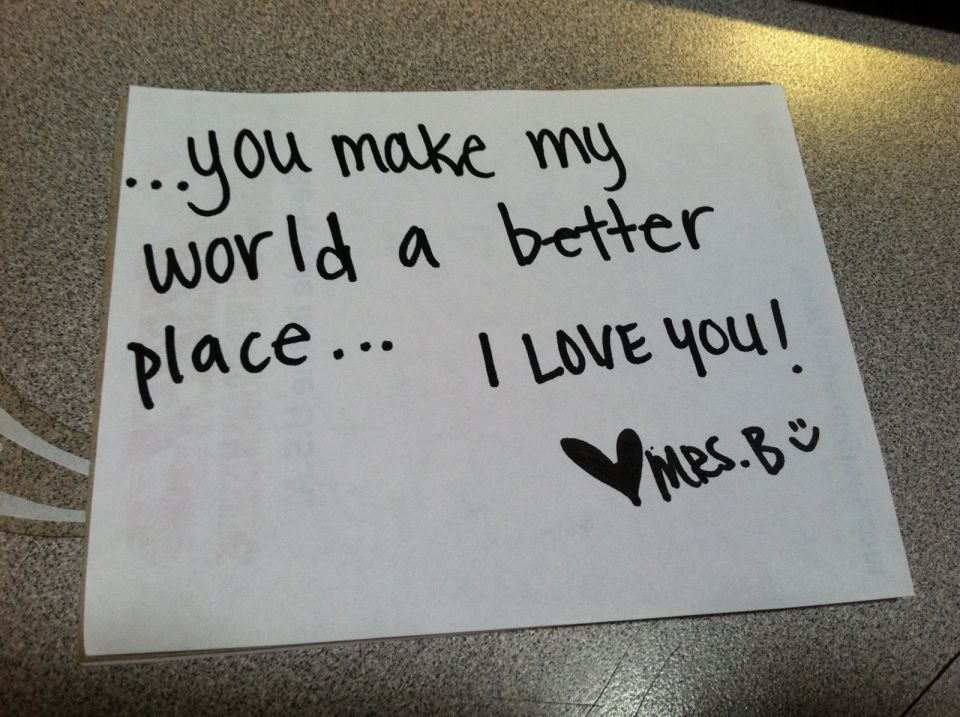 ...you make my
world a better
place... I LOVE YOU!
♥ MRS. B ☺